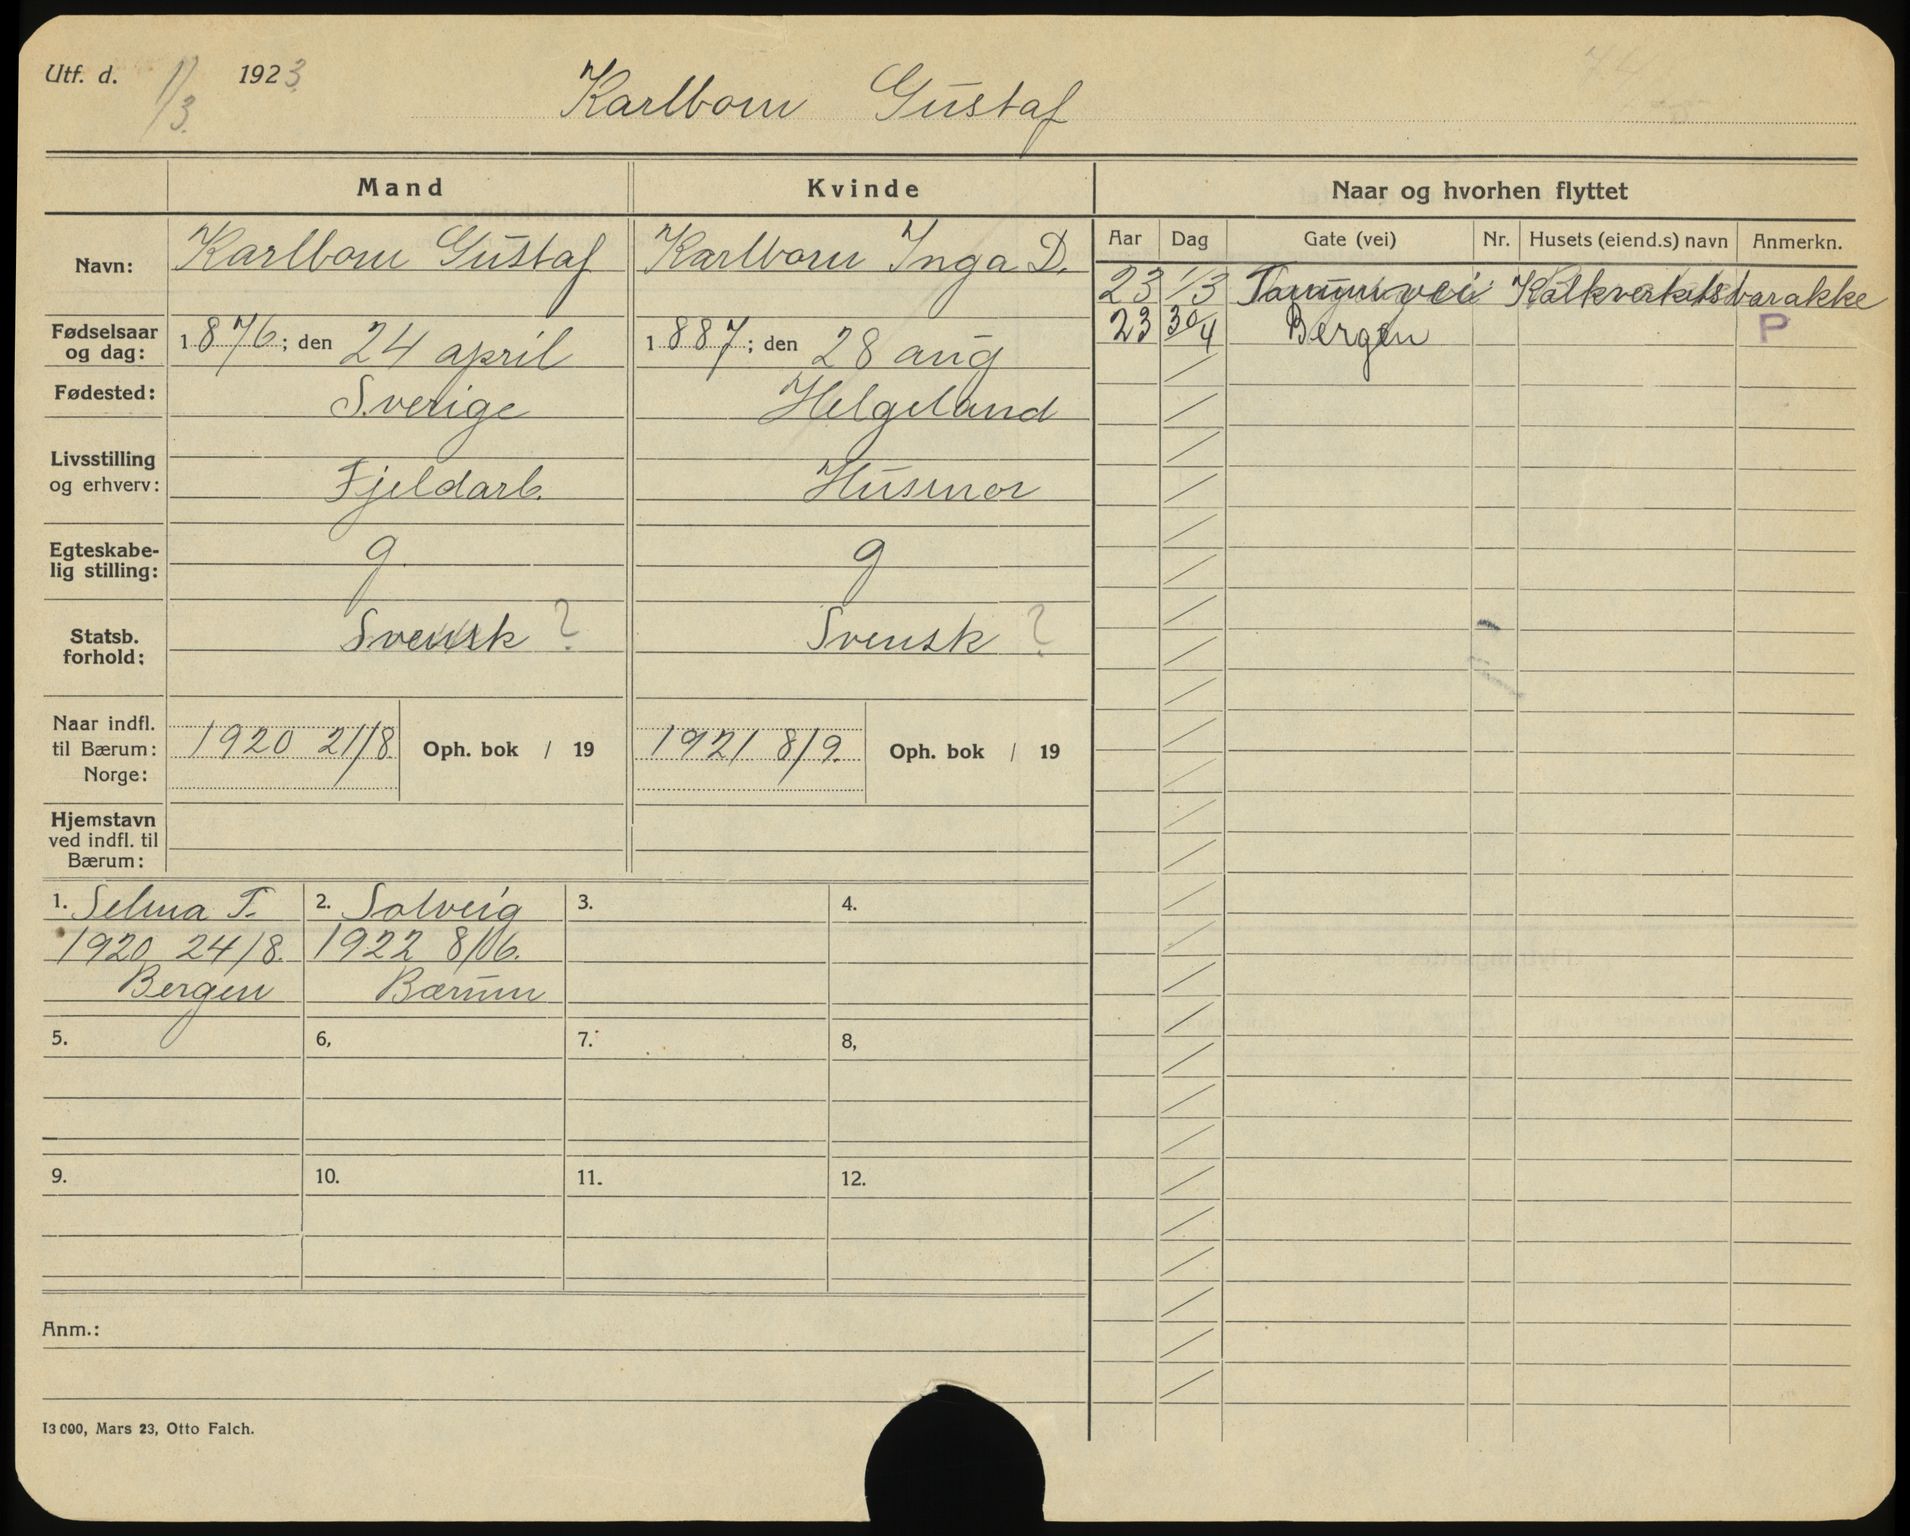 Utf. d. 1/3. 1923
Karlbom Gustaf
Mand Kvinde Naar og hvorhen flyttet
Navn: Karlbom Gustaf Karlbom Inga D.
Aar Dag Gate (vei) Nr. Husets (eiend.s) navn Anmerkn.
23 1/3 Kalkverkets barakke
23 30/4 Bergen P
Fødselsaar og dag: 1876; den 24 april 1887; den 28 aug
Fødested: Sverige Helgeland
Livsstilling og erhverv: Fjeldarb. Husmor
Egteskabe-
lig stilling: g. g
Statsb.
forhold: Svensk ? Svensk ?
Naar indfl.
til Bærum: 1920 21/8 Oph. bok / 19 1921 8/9. Oph. bok / 19
Norge:
Hjemstavn
ved indfl. til
Bærum:
1. Selma T. 2. Solveig 3. 4.
1920 24/8. 1922 8/6.
Bergen Bærum
5. 6, 7. 8,
9. 10. 11. 12.
Anm.:
13 000, Mars 23, Otto Falch.